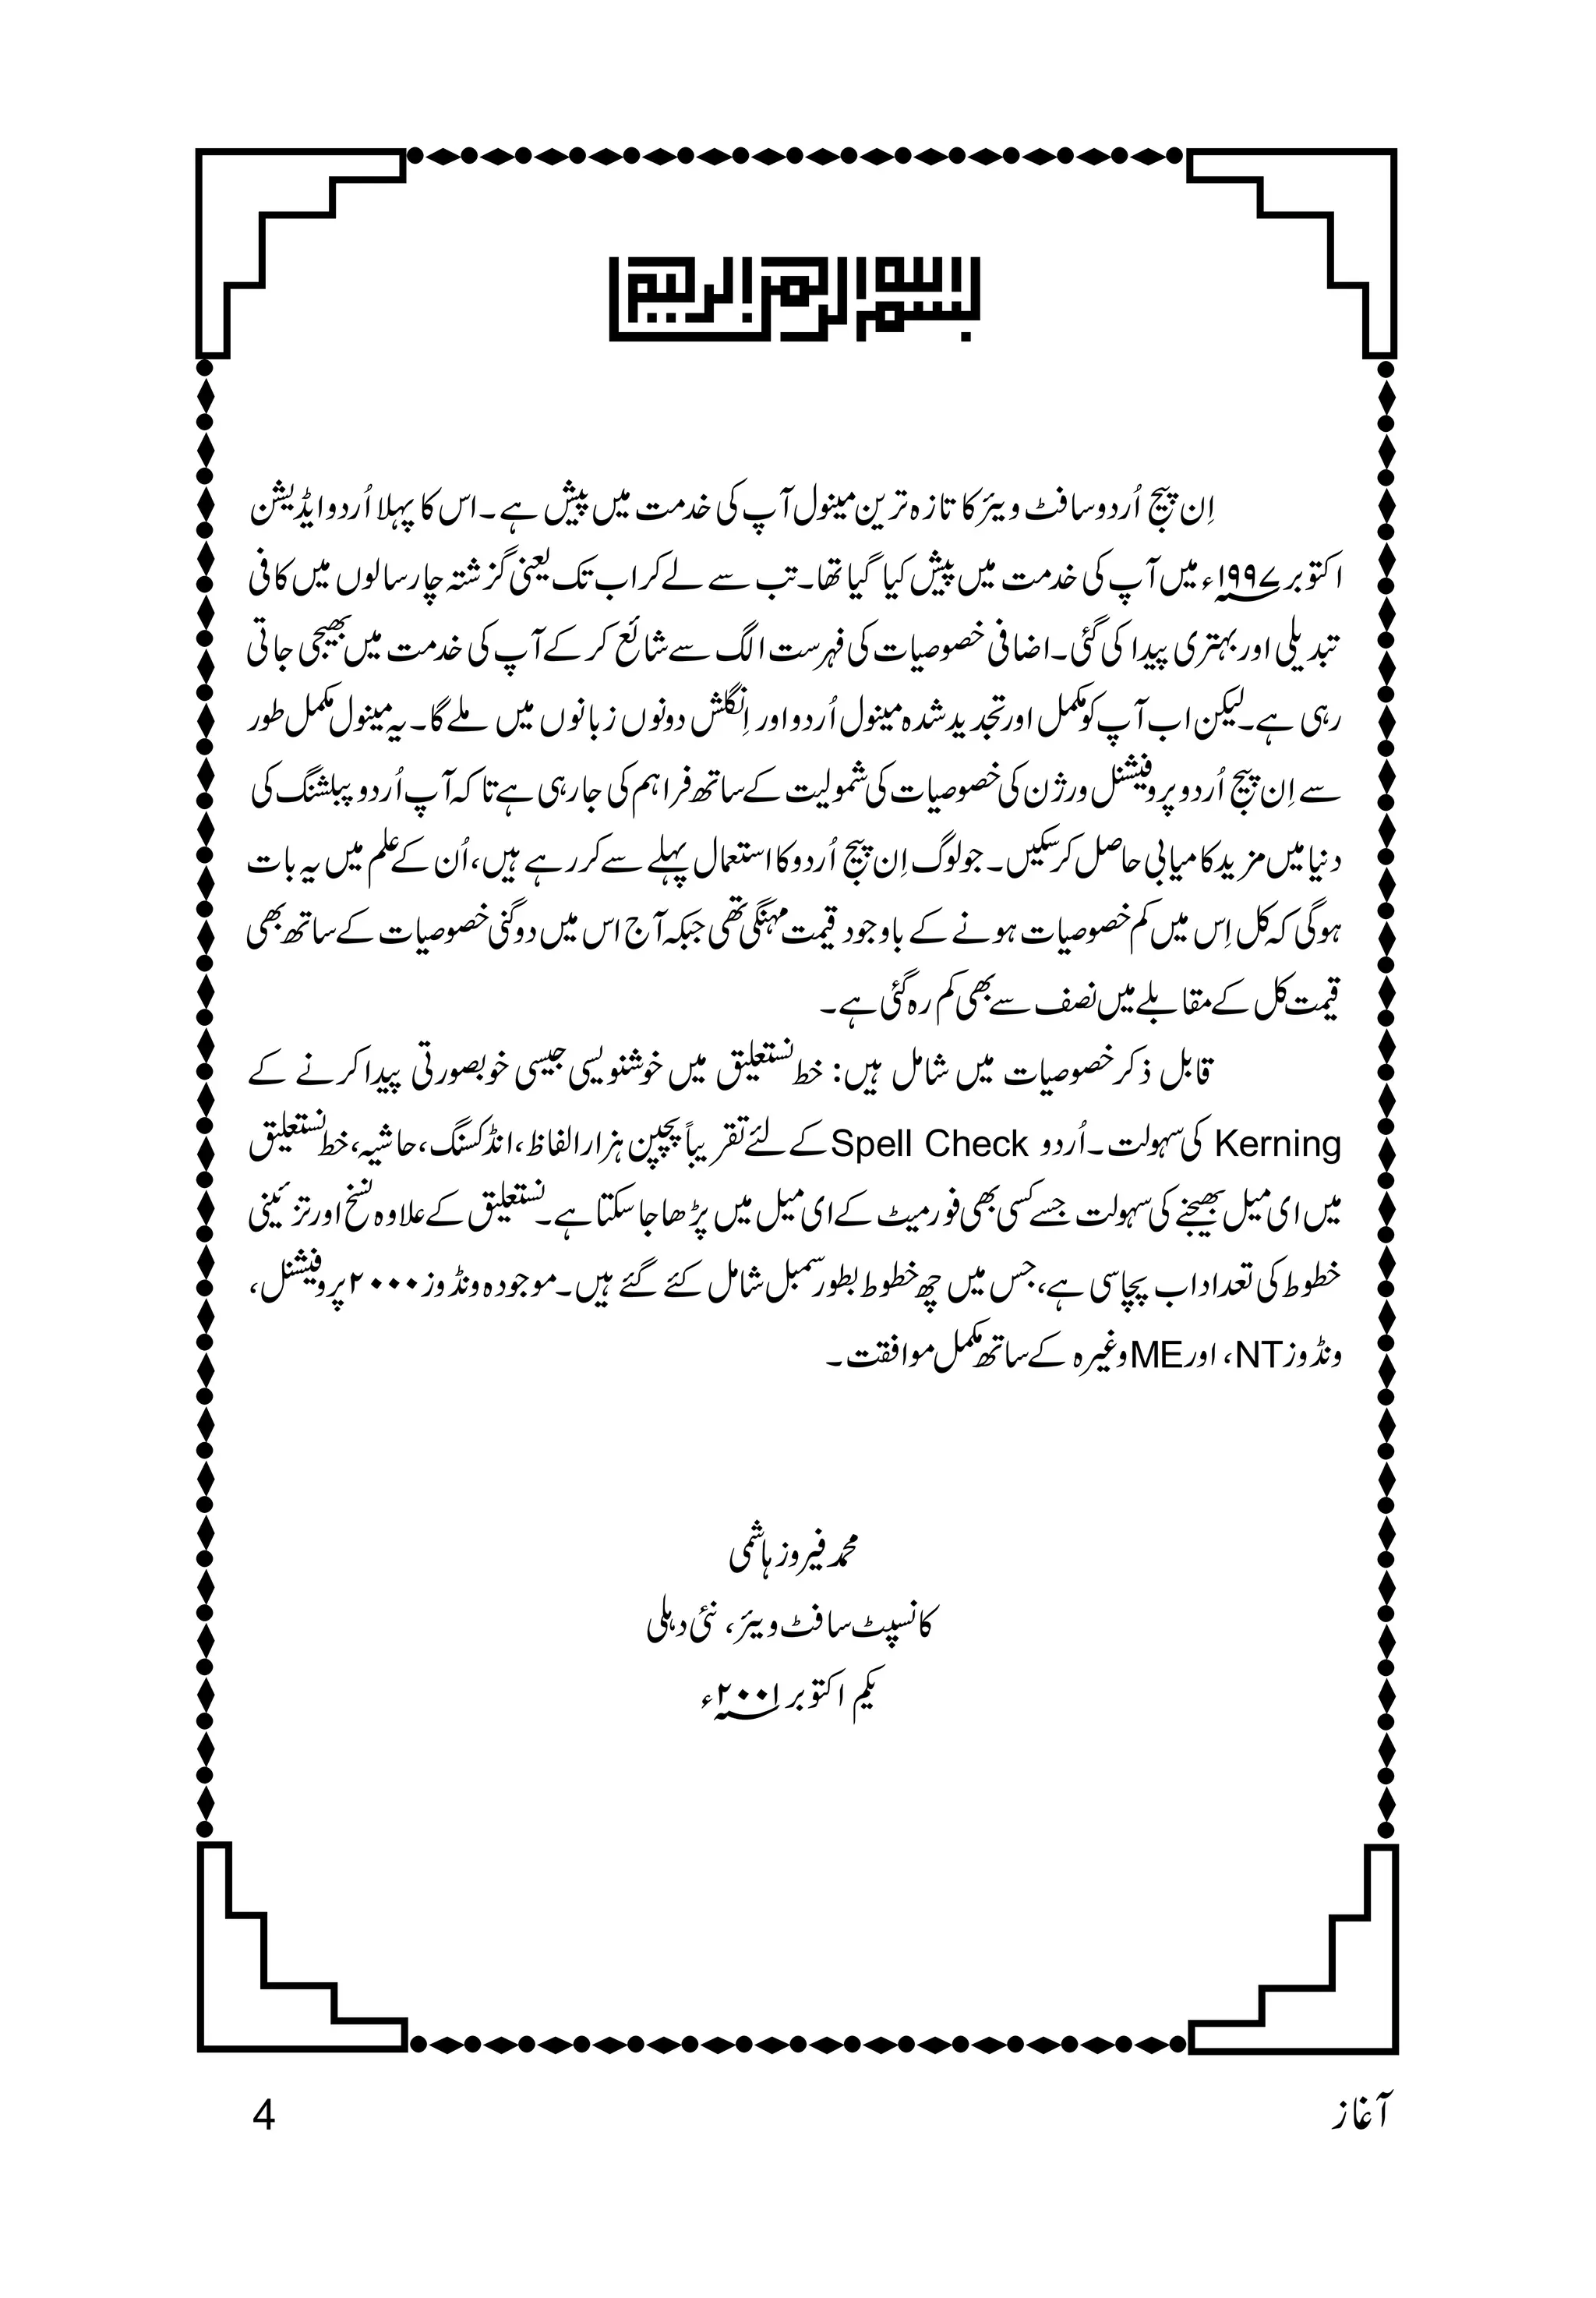 بسم اللہ الرحمن الرحیم
اِن پیج اُردو سافٹ ویئر کا تازہ ترین مینول آپ کی خدمت میں پیش ہے۔ اس کا پہلا اُردو ایڈیشن
اکتوبر ۱۹۹۷ء میں آپ کی خدمت میں پیش کیا گیا تھا۔ تب سے لے کر اب تک یعنی گزشتہ چار سالوں میں کافی
تبدیلی اور بہتری پیدا کی گئی۔ اضافی خصوصیات کی فہرست الگ سے شائع کر کے آپ کی خدمت میں بھیجی جاتی
رہی ہے۔ لیکن اب آپ کو مکمل اور تجدید شدہ مینول اُردو اور اِنگلش دونوں زبانوں میں ملے گا۔ یہ مینول مکمل طور
سے اِن پیج اُردو پروفیشنل ورژن کی خصوصیات کی شمولیت کے ساتھ فراہم کی جارہی ہے تاکہ آپ اُردو پبلشنگ کی
دنیا میں مزید کامیابی حاصل کرسکیں۔ جو لوگ اِن پیج اُردو کا استعمال پہلے سے کر رہے ہیں، اُن کے علم میں یہ بات
ہوگی کہ کل اِس میں کم خصوصیات ہونے کے باوجود قیمت مہنگی تھی جبکہ آج اس میں دوگنی خصوصیات کے ساتھ بھی
قیمت کل کے مقابلے میں نصف سے بھی کم رہ گئی ہے۔
قابل ذکر خصوصیات میں شامل ہیں: خط نستعلیق میں خوشنویسی جیسی خوبصورتی پیدا کرنے کے
Kerning کی سہولت۔ اُردو Spell Check کے لئے تقریباً پچپن ہزار الفاظ، انڈکسنگ، حاشیہ، خط نستعلیق
میں ای میل بھیجنے کی سہولت جسے کسی بھی فورمیٹ کے ای میل میں پڑھا جاسکتا ہے۔ نستعلیق کے علاوہ نسخ اور تزئینی
خطوط کی تعداد اب پچاسی ہے، جس میں چھ خطوط بطور سمبل شامل کئے گئے ہیں۔ موجودہ ونڈوز ۲۰۰۰ پروفیشنل،
ونڈوز NT، اور ME وغیرہ کے ساتھ مکمل موافقت۔
محمد فیروز ہاشمی
کانسپٹ سافٹ ویئر، نئی دہلی
یکم اکتوبر ۲۰۰۱ء
آغاز 4